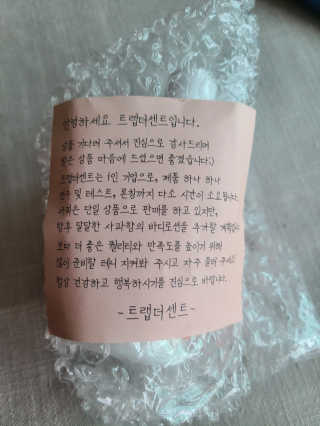 안녕하세요 트랩더센트입니다.
상품 기다려 주셔서 진심으로 감사드리며
받은 상품 마음에 드셨으면 좋겠습니다:)
트랩더센트는 1인 기업으로, 제품 하나 하나
연구 및 테스트, 론칭까지 다소 시간이 소요됩니다.
단일 상품으로 판매를 하고 있지만,
향후 달달한 사과향의 바디로션을 추가할 계획입니다
보다 더 좋은 퀄리티와 만족도를 높이기 위해
많이 준비할 테니 지켜봐 주시고 자주 들러 주세요
항상 건강하고 행복하시기를 진심으로 바랍니다.
-트랩더센트-